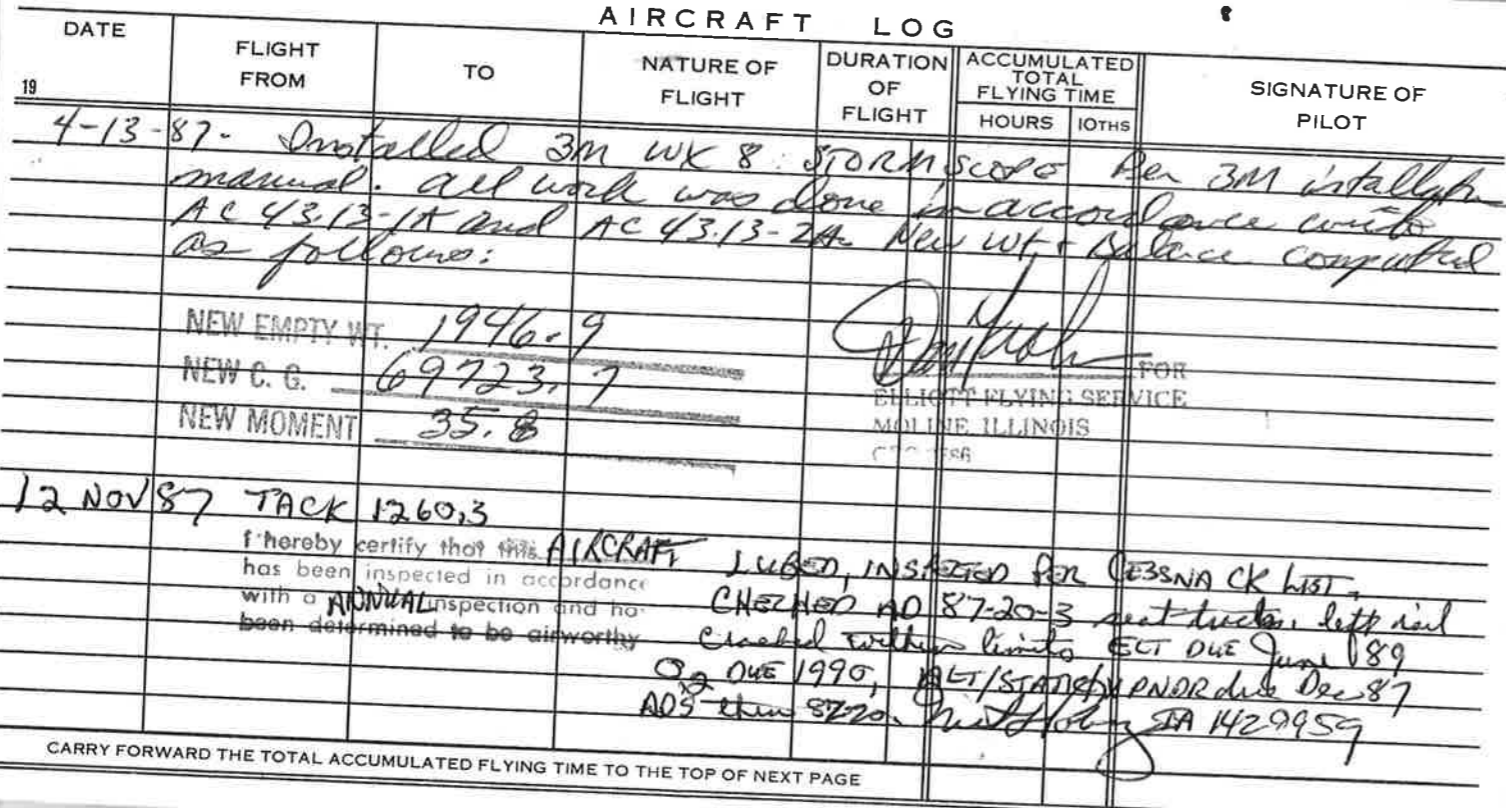 AIRCRAFT LOG
DATE
19
FLIGHT FROM
TO
NATURE OF FLIGHT
DURATION OF FLIGHT
ACCUMULATED TOTAL FLYING TIME
HOURS 10THS
SIGNATURE OF PILOT
4-13-87- Installed 3M WX 8 STORMSCOPE Per 3M
manual. All work was done in accordance with
AC 43.13-1A and AC 43.13-2A. New Wt. + Balance computed
as follows:
NEW EMPTY WT. 1946.9
NEW C. G. 69723.7
NEW MOMENT 35.8
FOR
ELLIOTT FLYING SERVICE
MOLINE, ILLINOIS
12 NOV 87 TACK 1260,3
I hereby certify that this AIRCRAFT LUBED, INSPECTED PER CESSNA CK LIST,
has been inspected in accordance
with a ANNUAL inspection and ha
been determined to be airworthy
CHECKED AD 87-20-3 seat tracks, left rail
Cracked within limits ELT DUE June 89
O2 DUE 1990, ALT/STATIC/XPNDR due Dec 87
ADS thru 87-20. IA 1429959
CARRY FORWARD THE TOTAL ACCUMULATED FLYING TIME TO THE TOP OF NEXT PAGE